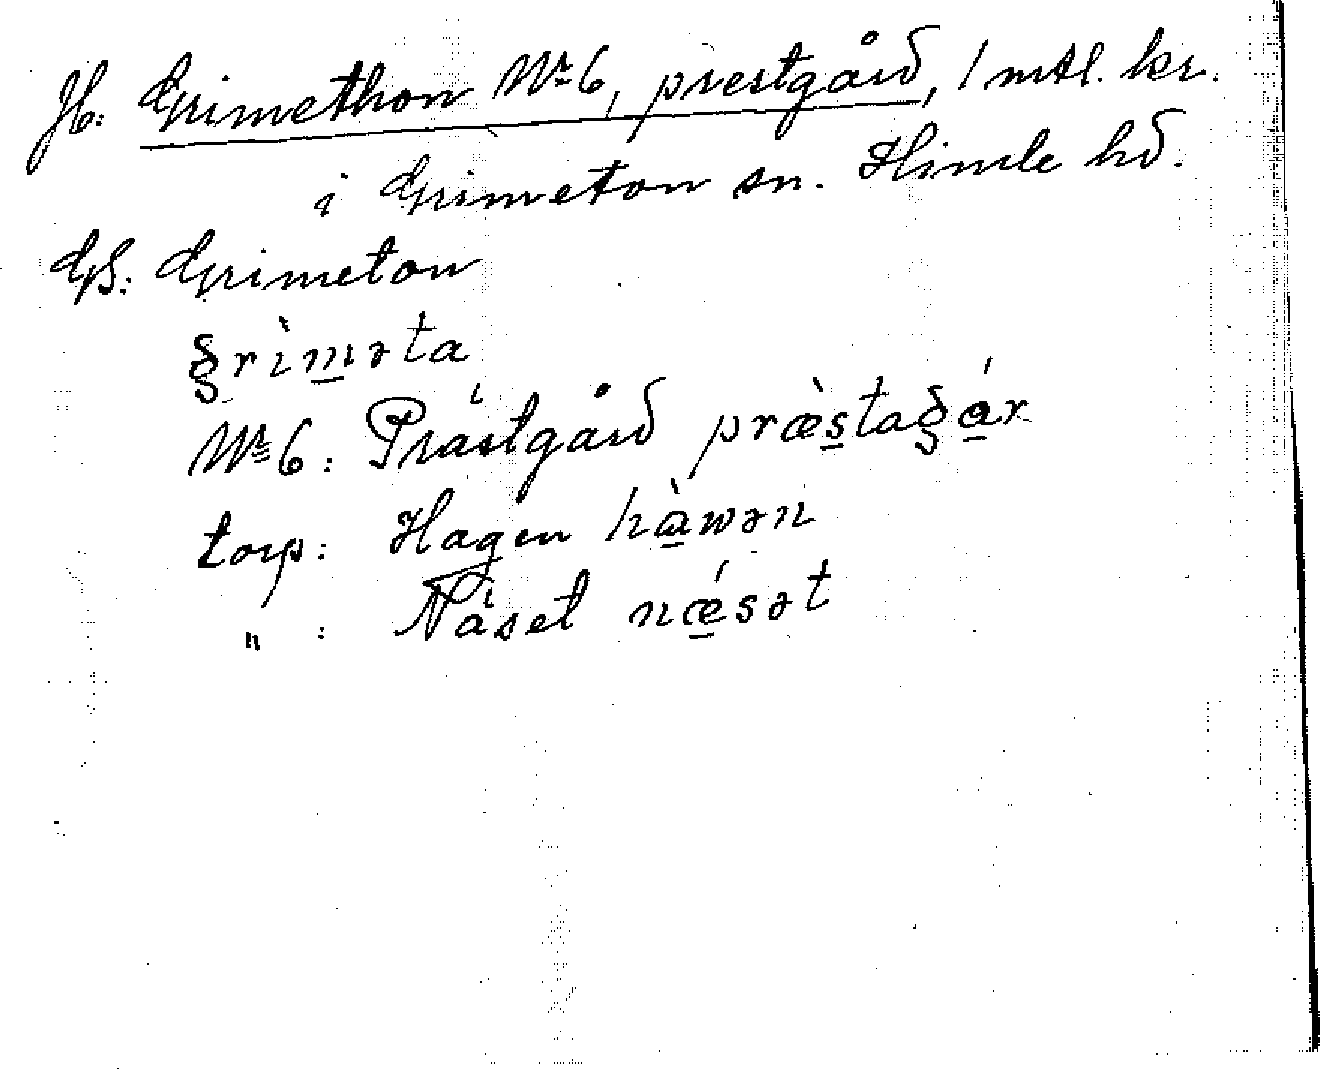 Jb: Grimethon Nr 6, prestgård, 1 mtl. kr.
i Grimeton sn. Himle hd.
GS: Grimeton
grìm̲əta
Nr 6: Prästgård præ̀s̲tagá̲r
torp: Hagen hà̲wən
" : Näset nǽ̲sət